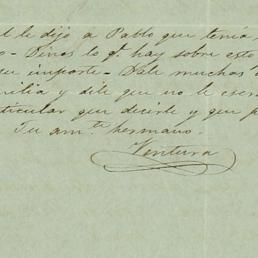 el le dijo a Pablo que tenía
Dinos lo q.e hay sobre esto
su importe. Dale muchas
familia y dile que no le escri
particular que decirle y que p
Tu am.te hermano.
Ventura